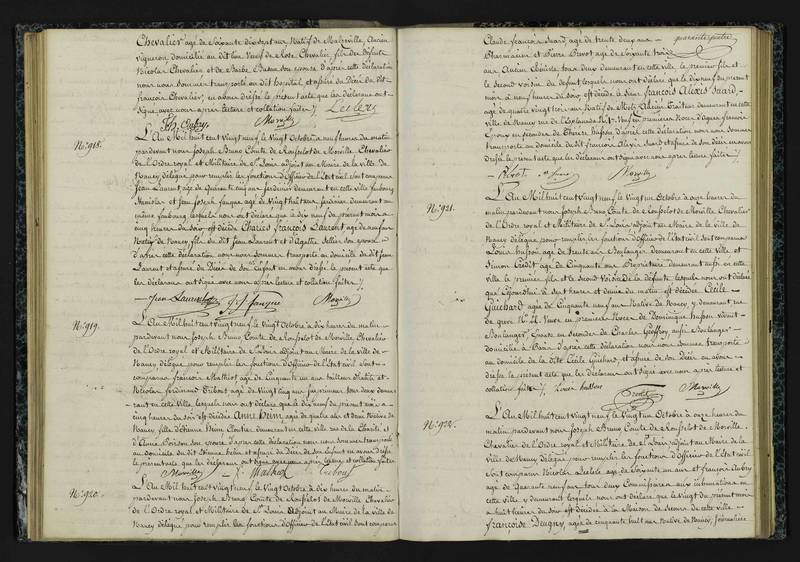 Chevalier agé de Soixante dix sept ans Natif de Malzeville, Ancien
vigneron domicilié au dit lieu Veuf de Rose Chevalier, fils des défunts
Nicolas Chevalier et de Barbe son epouse d'après cette déclaration
nous nous sommes transporté au dit hospital, et assuré du Décès du dit
françois Chevalier, en avons dressé le présent acte que les déclarans ont
Signé avec nous après lecture et collation faites
Morville
N°. 918.
L'An Mil huit cent Vingt neuf le Vingt Octobre à neuf heures du matin
pardevant nous Joseph Bruno Comte de Rousselot de Morville Chevalier
de l'Ordre royal et Militaire de St. Louis adjoint au Maire de la Ville de
Nancy délégué pour remplir les fonctions d'Officier de l'Etat civil Sont comparus
Jean Laurent agé de quarante cinq ans jardinier demeurant en cette ville faubourg
et Jean Joseph agé de Vingt huit ans jardinier demeurant au
même faubourg, lesquels nous ont déclaré que le dix neuf du présent mois à
cinq heures du soir est décédé Charles François Laurent agé de neuf ans
Natif de Nancy fils du dit Jean Laurent et d'Agathe Sellier son epouse
d'après cette déclaration nous nous sommes transporté au domicile du dit Jean
Laurent et assuré du Décès de Son Enfant en avons dressé le présent acte que
les déclarans ont Signé avec nous après lecture et collation faites
Jean Laurent Morville
N°. 919.
L'An Mil huit cent Vingt neuf le Vingt Octobre à dix heures du matin
pardevant nous Joseph Bruno Comte de Rousselot de Morville Chevalier
de l'Ordre royal et Militaire de St. Louis adjoint au Maire de la ville de
Nancy délégué pour remplir les fonctions d'Officier de l'Etat civil Sont
comparus françois Mathiot agé de Cinquante un ans tailleur d'habits et
Nicolas ferdinand agé de Vingt cinq ans imprimeur tous deux demeu
rant en cette ville, lesquels nous ont déclaré que le dix neuf du présent mois à
cinq heures du soir est décédée Anne agée de quatre ans et demi Native de
Nancy, fille d'Etienne Cloutier demeurant en cette ville rue de la Charité et
d'Anne Poirson Son epouse d'après cette déclaration nous nous sommes transporté
au domicile du dit Etienne et assuré du Décès de Son Enfant en avons dressé
le présent acte que les déclarans ont Signé avec nous après lecture et collation faites
Morville Mathiot
N°. 920.
L'An Mil huit cent Vingt neuf le Vingt Octobre à dix heures du matin
pardevant nous Joseph Bruno Comte de Rousselot de Morville Chevalier
de l'Ordre royal et Militaire de St. Louis Adjoint au Maire de la ville de
Nancy délégué pour remplir les fonctions d'Officier de l'Etat civil Sont comparus
quarante quatre
Claude françois agé de trente deux ans
et Pierre agé de Soixante trois
ans Ancien tous deux demeurant en cette ville le premier fils et
le Second Voisin du défunt lesquels nous ont déclaré que le dix neuf du présent
mois à neuf heures du soir est décédé le Sieur François Alexis
agé de quatre Vingt trois ans Natif de Metz Ancien Traiteur demeurant en cette
ville de Nancy rue de l'Esplanade Veuf en premières Noces d'Agnès
Epoux en Secondes de Thérèse d'après cette déclaration nous nous sommes
transporté au domicile du dit françois Alexis et assuré de son décès en avons
dressé le présent acte que les déclarans ont Signé avec nous après lecture faites
Morville
N°. 921.
L'An Mil huit cent Vingt neuf le Vingt un Octobre à onze heures du
matin pardevant nous Joseph Bruno Comte de Rousselot de Morville Chevalier
de l'Ordre royal et Militaire de St. Louis adjoint au Maire de la ville de
Nancy délégué pour remplir les fonctions d'Officier de l'Etat civil Sont comparus
Louis husson agé de trente ans Boulanger demeurant en cette ville et
Simon agé de Cinquante ans Propriétaire demeurant aussi en cette
ville le premier fils et le Second Voisin de la défunte lesquels nous ont déclaré
que aujourd'hui à sept heures et demie du matin est décédée Cécile
Guichard agée de Cinquante neuf ans Native de Nancy y demeurant rue
de grève Veuve en premières Noces de Dominique husson vivant
Boulanger, Epouse en Secondes de Charles Geoffroy, aussi Boulanger
domicilié à d'après cette déclaration nous nous sommes transporté
au domicile de la dite Cécile Guichard et assuré de Son Décès en avons
dressé le présent acte que les déclarans ont Signé avec nous après lecture et
collation faites Louis husson
Morville
N°. 922.
L'An Mil huit cent Vingt neuf le Vingt un Octobre à onze heures du
matin pardevant nous Joseph Bruno Comte de Rousselot de Morville
Chevalier de l'Ordre royal et Militaire de St. Louis adjoint au Maire de la
ville de Nancy délégué pour remplir les fonctions d'Officier de l'Etat civil
Sont comparus Nicolas agé de Soixante un ans et françois Aubry
agé de Quarante neuf ans tous deux Commissaires aux inhumations en
cette ville y demeurant lesquels nous ont déclaré que le Vingt du présent mois
à huit heures du soir est décédée à la Maison de Secours de cette ville
Françoise agée de cinquante huit ans Native de Nancy, Journalière